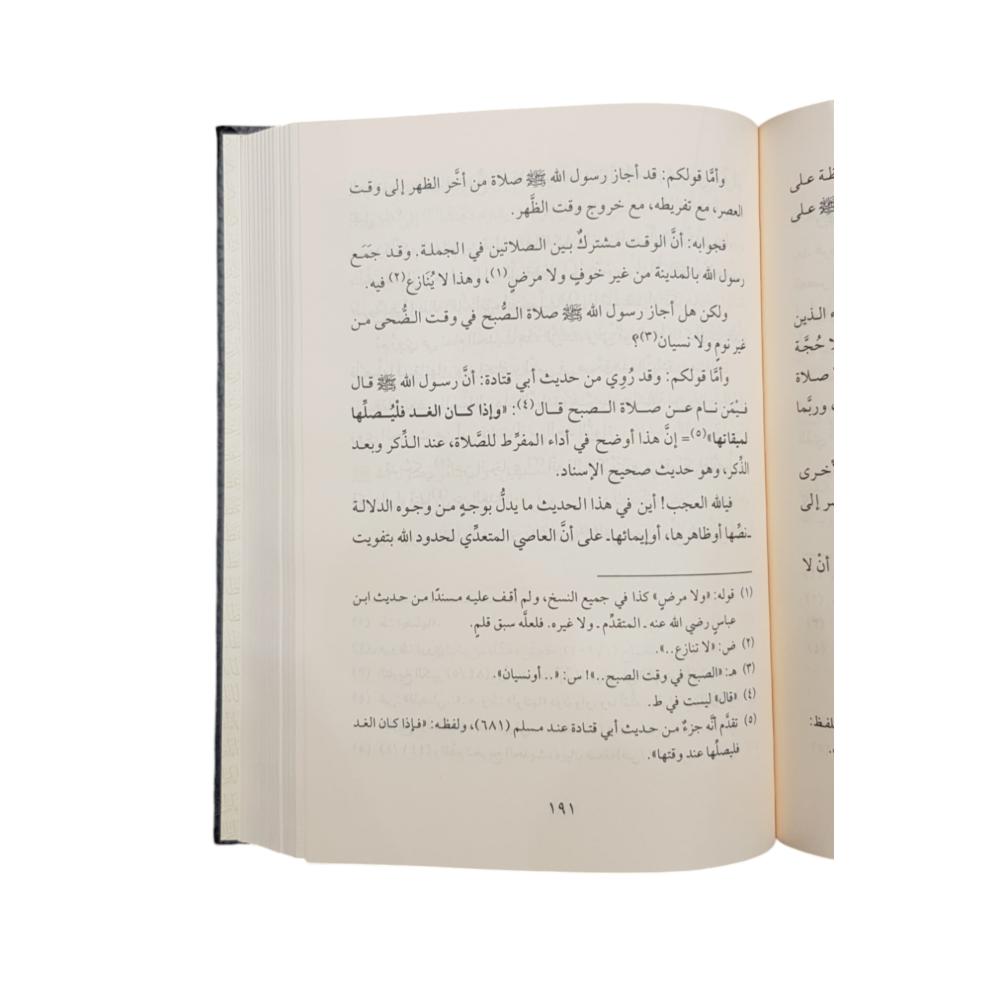 وأمَّا قولكم: قد أجاز رسول الله ﷺ صلاة من أخَّر الظهر إلى وقت
العصر، مع تفريطه، مع خروج وقت الظَّهر.
فجوابه: أنَّ الوقت مشتركٌ بين الصلاتين في الجملة. وقد جمَع
رسول الله بالمدينة من غير خوفٍ ولا مرضٍ(١)، وهذا لا يُنَازع(٢) فيه.
ولكن هل أجاز رسول الله ﷺ صلاة الصُّبح في وقت الضُّحى من
غير نومٍ ولا نسيان(٣)؟
وأمَّا قولكم: وقد رُوِي من حديث أبي قتادة: أنَّ رسول الله ﷺ قال
فيْمَن نام عن صلاة الصبح قال(٤): «وإذا كان الغد فلْيُصلِّها
لميقاتها»(٥)= إنَّ هذا أوضح في أداء المفرِّط للصَّلاة، عند الذِّكر وبعد
الذِّكر، وهو حديث صحيح الإسناد.
فيالله العجب! أين في هذا الحديث ما يدلُّ بوجهٍ من وجوه الدلالة
ـ نصِّها أو ظاهرها، أو إيمائها ـ على أنَّ العاصي المتعدِّي لحدود الله بتفويت
(١) قوله: «ولا مرضٍ» كذا في جميع النسخ، ولم أقف عليه مسندًا من حديث ابن
عباسٍ رضي الله عنه ـ المتقدِّم ـ ولا غيره. فلعلَّه سبق قلمٍ.
(٢) ض: «لا تنازع..».
(٣) هـ: «الصبح في وقت الصبح..»! س: «.. أو نسيان».
(٤) «قال» ليست في ط.
(٥) تقدَّم أنَّه جزءٌ من حديث أبي قتادة عند مسلم (٦٨١)، ولفظه: «فإذا كان الغد
فليصلِّها عند وقتها».
١٩١
ظة على
ﷺ على
ء الذين
لا حُجَّة
صلاة
، وربَّما
أخرى
سر إلى
أنْ لا
لفظ: